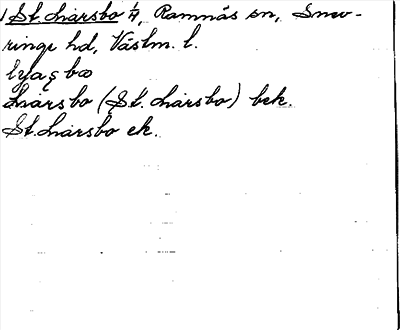 St. Liarsbo 1/4, Ramnäs sn, Snev-
ringe hd, Västm. l.
Liarsbo (St. Liarsbo) bek.
St. Liarsbo ek.